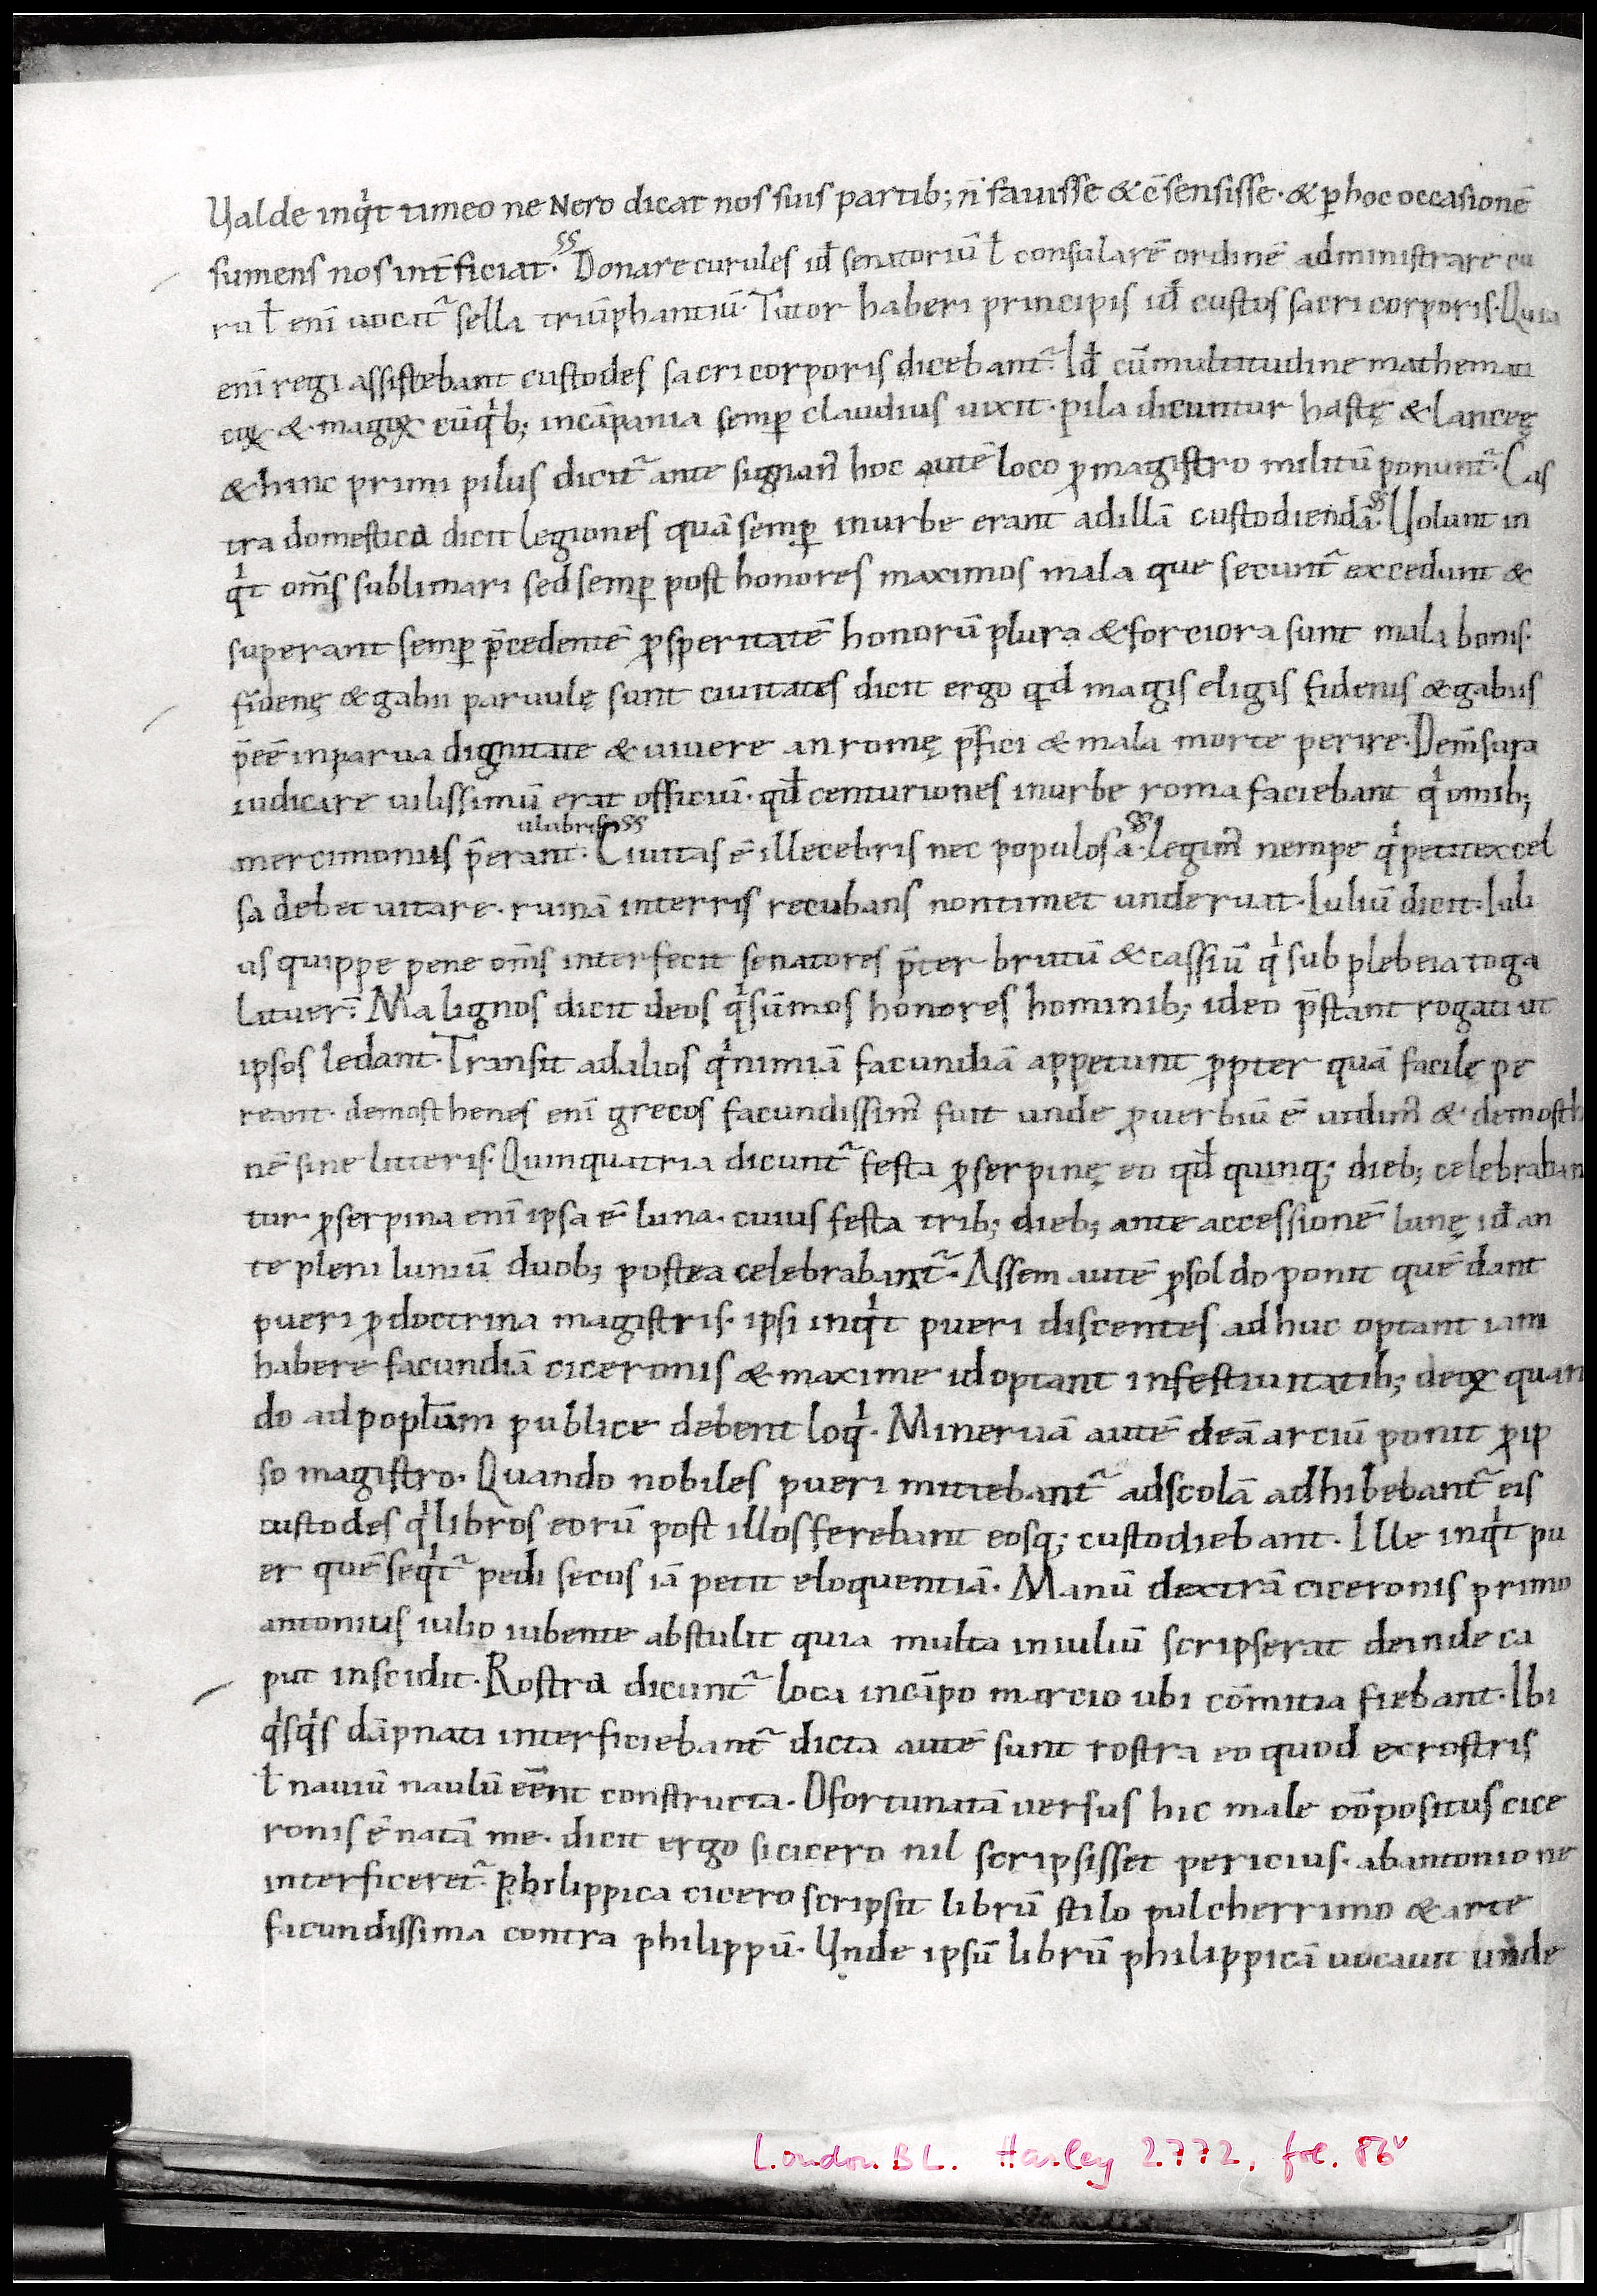 Ualde inq̍t timeo ne Nero dicat nos suis partib; n̄ fauisse & c̄sensisse · & ꝑ hoc occasionē
sumens nos int̄ficiat · Donare curules id̄ senatoriū ł consularē ordinē administrare cu
ruł eni̅ uocit᷑ sella triūphantiū · Tutor haberi principis id̄ custos sacri corporis · Quia
eni̅ regi assistebant custodes sacri corporis dicebant᷑ · Id̄ cū multitudine mathemati
coꝝ & magoꝝ cū q̍b; in cāpania semꝑ claudius uixit · pila dicuntur hastę & lanceę
& hinc primi pilus dicit᷑ ante signan᷒ hoc autē loco ꝓ magistro militū ponunt᷑ · Cas
tra domestica dicit legiones quā semꝑ in urbe erant ad illā custodiendā · Uolunt in
q̍t om̄s sublimari sed semꝑ post honores maximos mala que secunt᷑ excedunt &
superant semꝑ p̄cedentē ꝓsperitatē honorū plura & forciora sunt mala bonis ·
fidenę & gabii paruulę sunt ciuitates dicit ergo qd̄ magis eligis fidenis & gabiis
p̄eē in parua dignitate & uiuere an romę p̄fici & mala morte perire · Dem̄sura
iudicare uilissimū erat officiū · qd̄ centuriones in urbe roma faciebant q̍ omib;
ulubris
mercimoniis p̄erant · Ciuitas ē illecebris nec populosa · legim᷒ nempe q̍ petit excel
sa debet uitare · ruinā in terris recubans non timet unde ruat · Iuliū dicit · Iuli
us quippe pene om̄s interfecit senatores p̄ter brutū & cassiū q̍ sub plebeia toga
lituer̄ · Malignos dicit deos q̍ sūmos honores hominib; ideo p̄stant rogati ut
ipsos ledant · Transit ad alios q̍ nimiā facundiā appetunt ꝓpter quā facilę pe
reant · demosthenes eni̅ grecos facundissim᷒ fuit unde ꝓuerbiū ē uidim᷒ & demosth
nē sine litteris · Quinquatria dicunt᷑ festa ꝓserpinę eo qd̄ quinq; dieb; celebraban
tur · ꝓserpina eni̅ ipsa ē luna · cuius festa trib; dieb; ante accessionē lunę id̄ an
te pleni luniū duob; postea celebrabant᷑ · Assem autē ꝓ soldo ponit quē dant
pueri ꝓ doctrina magistris · ipsi inq̍t pueri discentes adhuc optant iam
habere facundiā ciceronis & maxime id optant in festiuitatib; deoꝝ quan
do ad popłum publice debent loq̍ · Mineruā autē deā artiū ponit ꝓ ip
so magistro · Quando nobiles pueri mittebant᷑ ad scolā adhibebant᷑ eis
custodes q̍ libros eorū post illos ferebant eosq; custodiebant · Ille inq̍t pu
er quē seq̍t᷑ pedisecus iā petit eloquentiā · Manū dextrā ciceronis primo
antonius iulio iubente abstulit quia multa in iuliū scripserat deinde ca
put inscidit · Rostra dicunt᷑ loca in cāpo marcio ubi cōmitia fiebant · Ibi
q̍sq̍s dāpnati interficiebant᷑ dicta autē sunt rostra eo quod ex rostris
ł nauiū nauiū eēnt constructa · O fortunatā uersus hic male cōpositus cice
ronis ē natā me · dicit ergo si cicero nil scripsisset pericius · ab antonio ne
interficeret᷑ · philippica cicero scripsit librū stilo pulcherrimo & arte
facundissima contra philippū · Unde ipsū librū philippicā uocauit unde
London BL. Harley 2772, fol. 86v